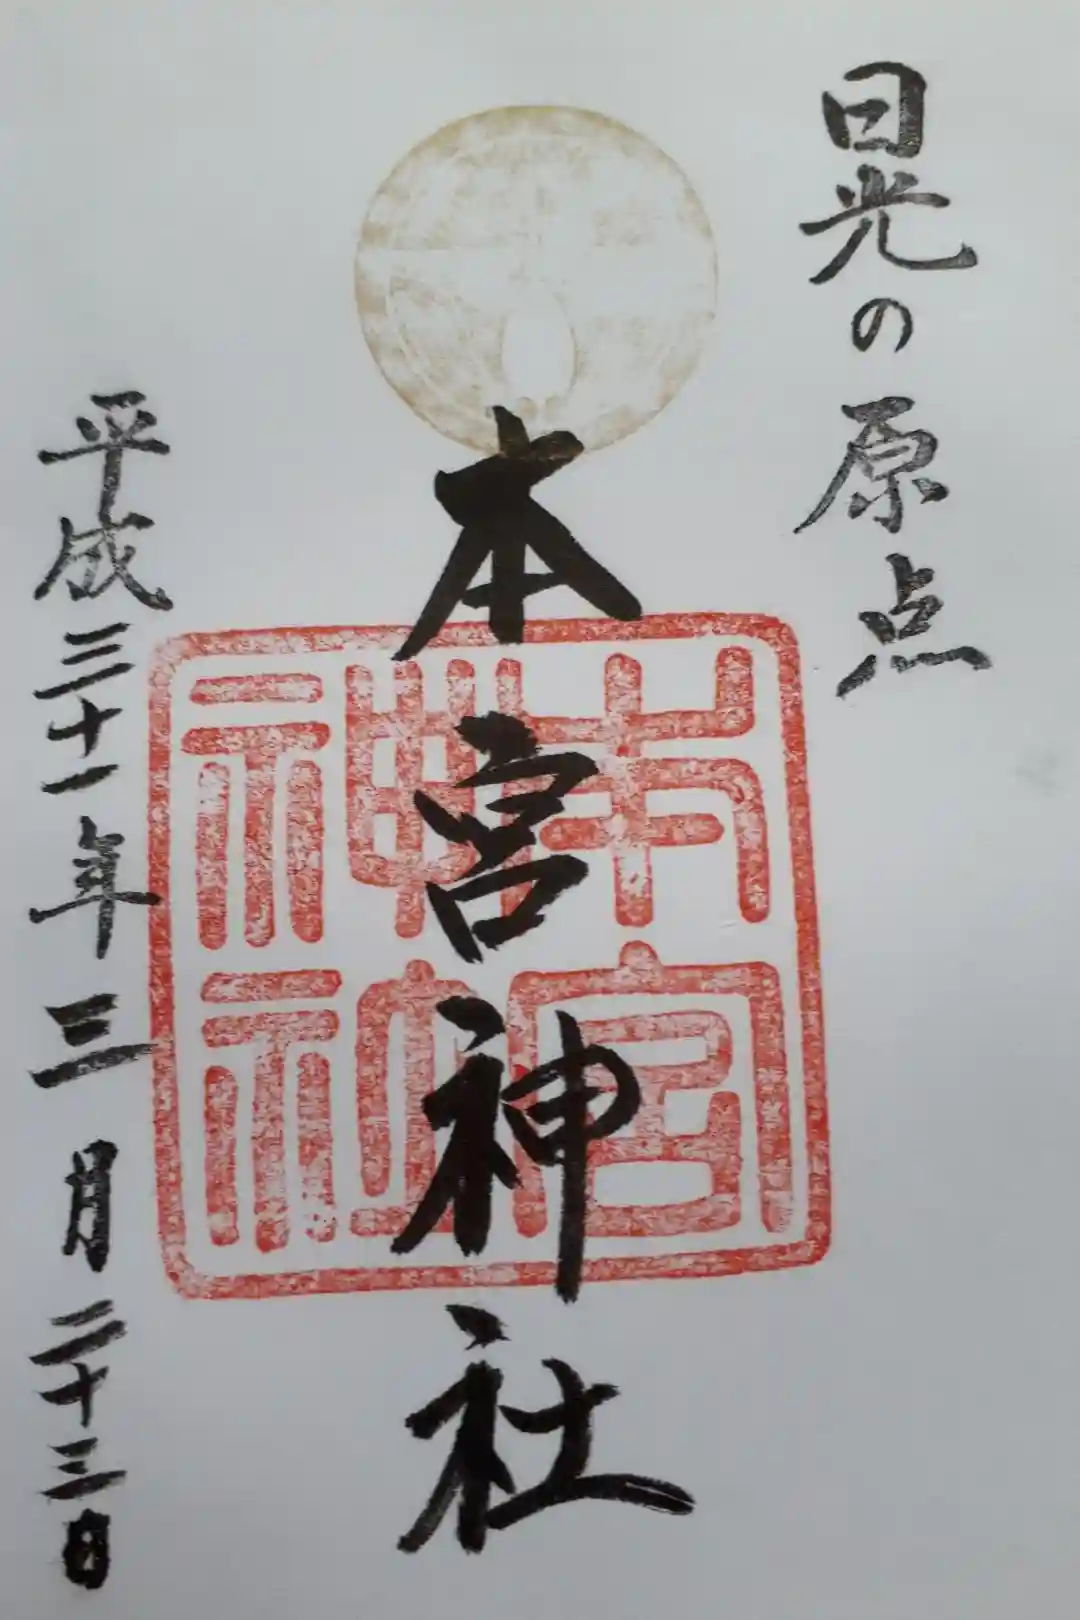 日光の原点
本宮神社
本宮神社
平成三十一年三月二十三日